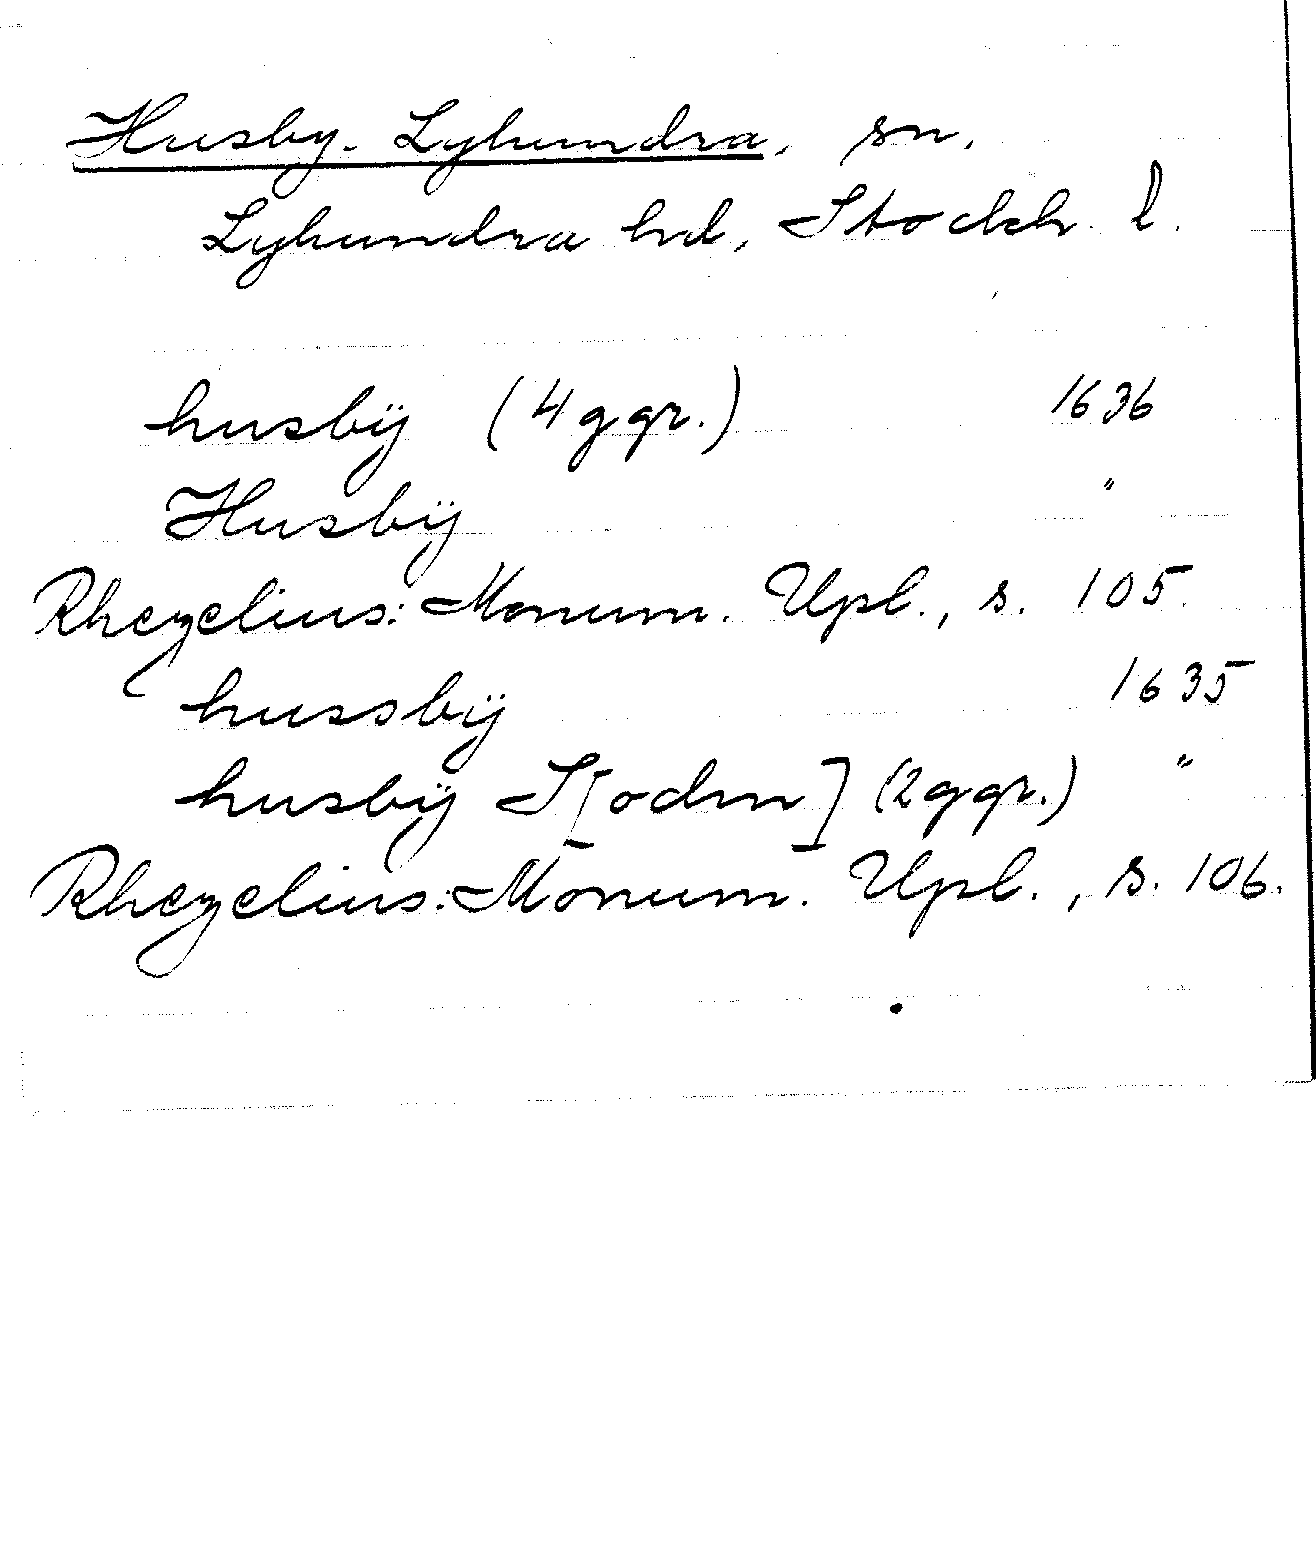 Husby-Lyhundra, sn,
Lyhundra hd, Stockh. l.
husbÿ (4 ggr.) 1636
Husbÿ "
Rhezelius: Monum. Upl., s. 105.
hussbÿ 1635
husbÿ S[ockn] (2 ggr.) "
Rhezelius: Monum. Upl., s. 106.